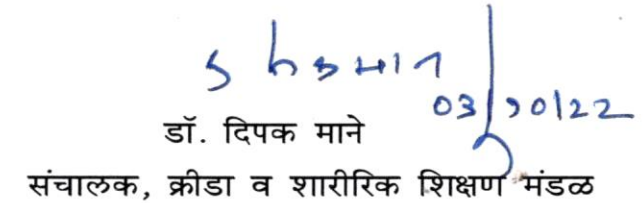 03/10/22
डॉ. दिपक माने
संचालक, क्रीडा व शारीरिक शिक्षण मंडळ